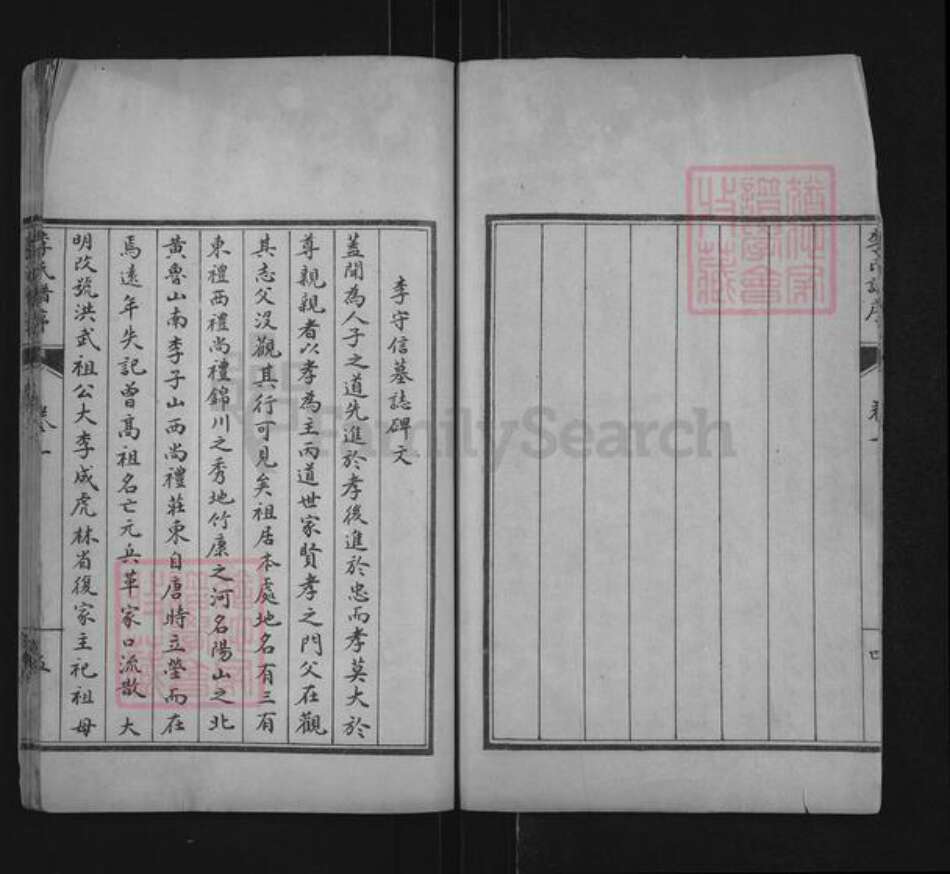 李氏譜序
卷一
四
李守信墓誌碑文
蓋聞為人子之道先進於孝後進於忠而孝莫大於
尊親親者以孝為主丙道世家賢孝之門父在觀
其志父沒觀其行可見矣祖居本處地名有三有
東禮西禮尚禮錦川之秀地竹康之河名陽山之北
黃魯山南李子山西尚禮莊東自唐時立塋而在
焉遠年失記曾高祖名亡元兵革家口流散大
明改號洪武祖公大李成虎林省復家主祀祖母
李氏譜序
卷一
五
FamilySearch